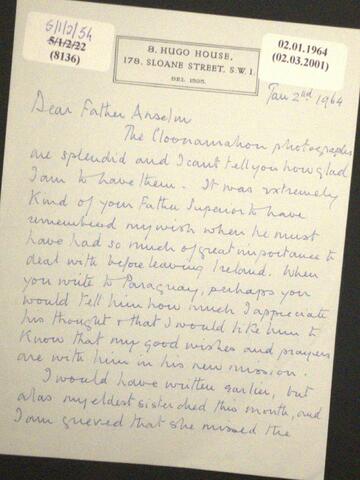 5/1/2/54
5/1/2/22
(8136)
8. HUGO HOUSE,
178. SLOANE STREET, S.W.1.
BEL. 1595.
02.01.1964
(02.03.2001)
Jan 2nd 1964
Dear Father Anselm
The Cloonamahon photographs
are splendid and I can't tell you how glad
I am to have them. It was extremely
kind of your Father Superior to have
remembered my wish when he must
have had so much of great importance to
deal with before leaving Ireland. When
you write to Paraguay, perhaps you
would tell him how much I appreciate
his thought & that I would like him to
know that my good wishes and prayers
are with him in his new mission.
I would have written earlier, but
alas my eldest sister died this month, and
I am grieved that she missed the